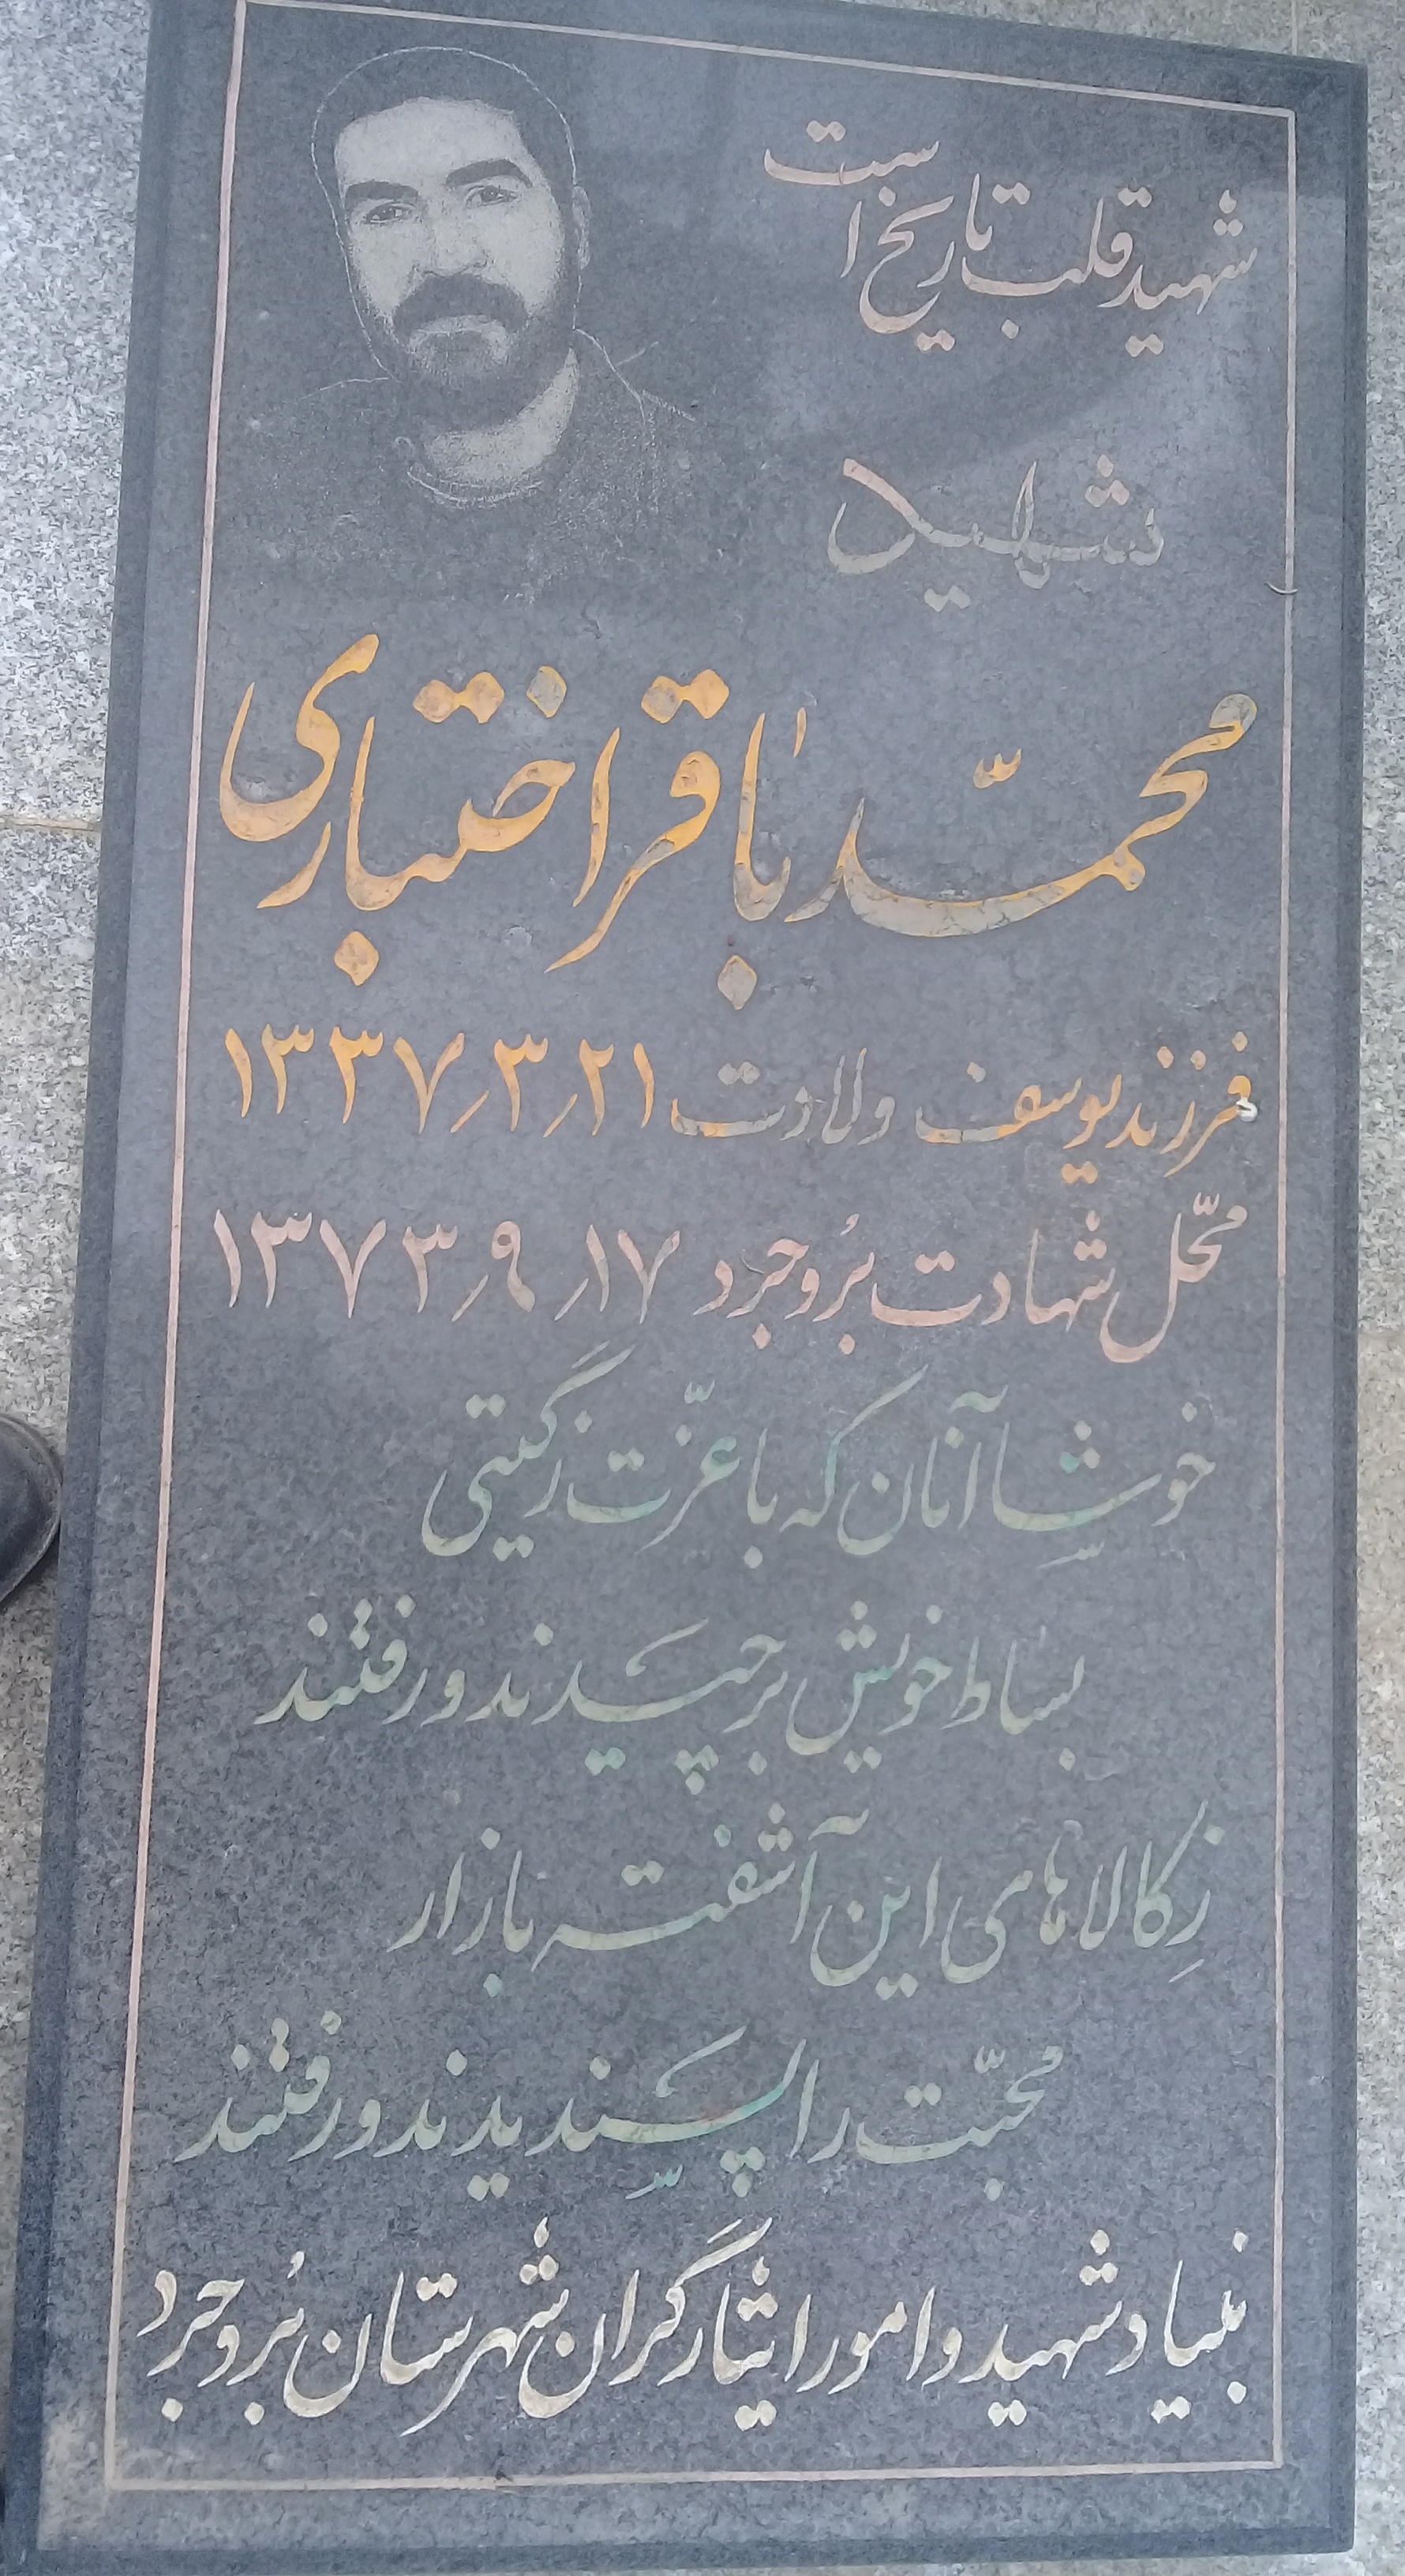 شهید قلب تاریخ است
شهید
محمّد باقر اختباری
فرزند یوسف ولادت ۱۳۳۷/۳/۲۱
محّل شهادت بُروجرد ۱۳۷۳/۹/۱۷
خوشا آنان که با عزّت ز گیتی
بساط خویش برچیدند و رفتند
زِ کالاهای این آشفته بازار
محبّت را پسندیدند و رفتند
بنیاد شهید و امور ایثارگران شهرستان بُروجرد